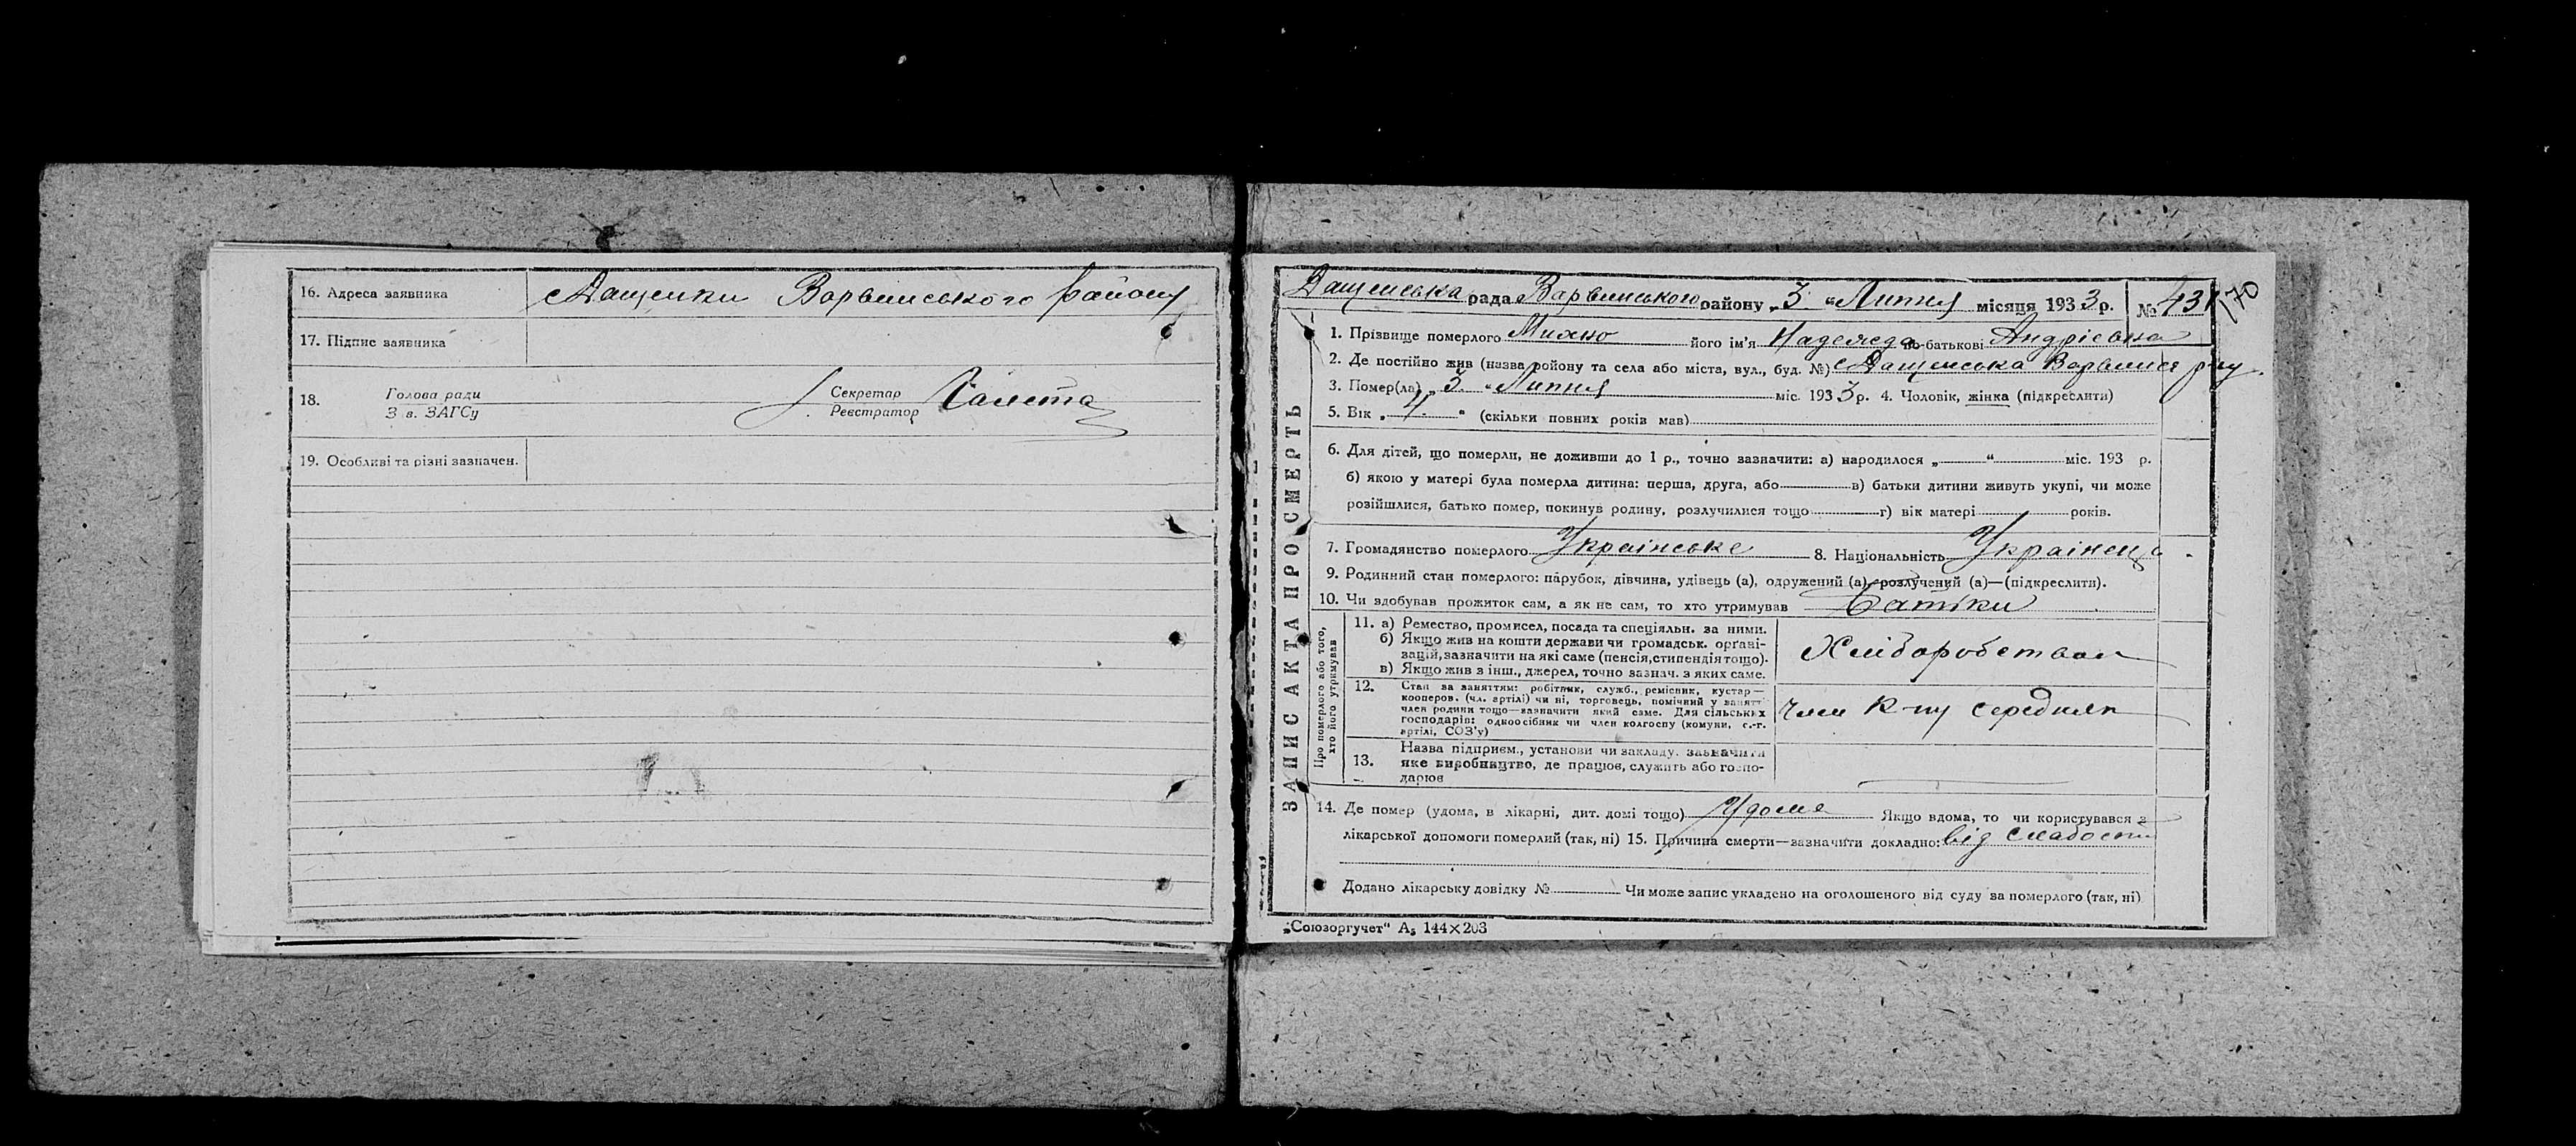 16. Адреса заявника с Дащенки Варвинського району
17. Підпис заявника
18. Голова ради
З в. ЗАГСу
Секретар
Реєстратор Галета
19. Особливі та різні зазначен.
ЗАПИС АКТА ПРО СМЕРТЬ
Дащенська рада Варвинського району „3“ Липня місяця 1933 р. № 43
170
1. Прізвище померлого Михно його ім'я Надежда по-батькові Андріевна
2. Де постійно жив (назва району та села або міста, вул., буд. №) с Дащенська Варвинск р-ну
3. Помер(ла) „3“ Липня міс. 1933 р. 4. Чоловік, жінка (підкреслити)
5. Вік „4“ (скільки повних років мав)
6. Для дітей, що померли, не доживши до 1 р., точно зазначити: а) народилося „ “ міс. 193 р.
б) якою у матері була померла дитина: перша, друга, або в) батьки дитини живуть укупі, чи може
розійшлися, батько помер, покинув родину, розлучилися тощо г) вік матері років.
7. Громадянство померлого Українське 8. Національність Українец
9. Родинний стан померлого: парубок, дівчина, удівець (а), одружений (а), розлучений (а)—(підкреслити).
10. Чи здобував прожиток сам, а як не сам, то хто утримував батьки
Про померлого або того, хто його утримував
11. а) Ремество, промисел, посада та спеціяльн. за ними.
б) Якщо жив на кошти держави чи громадськ. організацій, зазначити на які саме (пенсія, стипендія тощо).
в) Якщо жив з інш., джерел, точно зазнач. з яких саме.
Хліборобством
12. Стан за заняттям: робітник, служб., ремісник, кустар—
кооперов. (чл. артілі) чи ні, торговець, помічний у занятт
член родини тощо—зазначити який саме. Для сільських
господарів: одноосібник чи член колгоспу (комуни, с.-г.
артілі, СОЗ'у)
Член к-пу середняк
13. Назва підприєм., установи чи закладу. зазначити
яке виробництво, де працює, служить або госпо-
дарює
14. Де помер (удома, в лікарні, дит. домі тощо) Удома Якщо вдома, то чи користувався з
лікарської допомоги померлий (так, ні) 15. Причина смерти—зазначити докладно: від слабости
Додано лікарську довідку № Чи може запис укладено на оголошеного від суду за померлого (так, ні)
„Союзоргучет“ А₅ 144×203